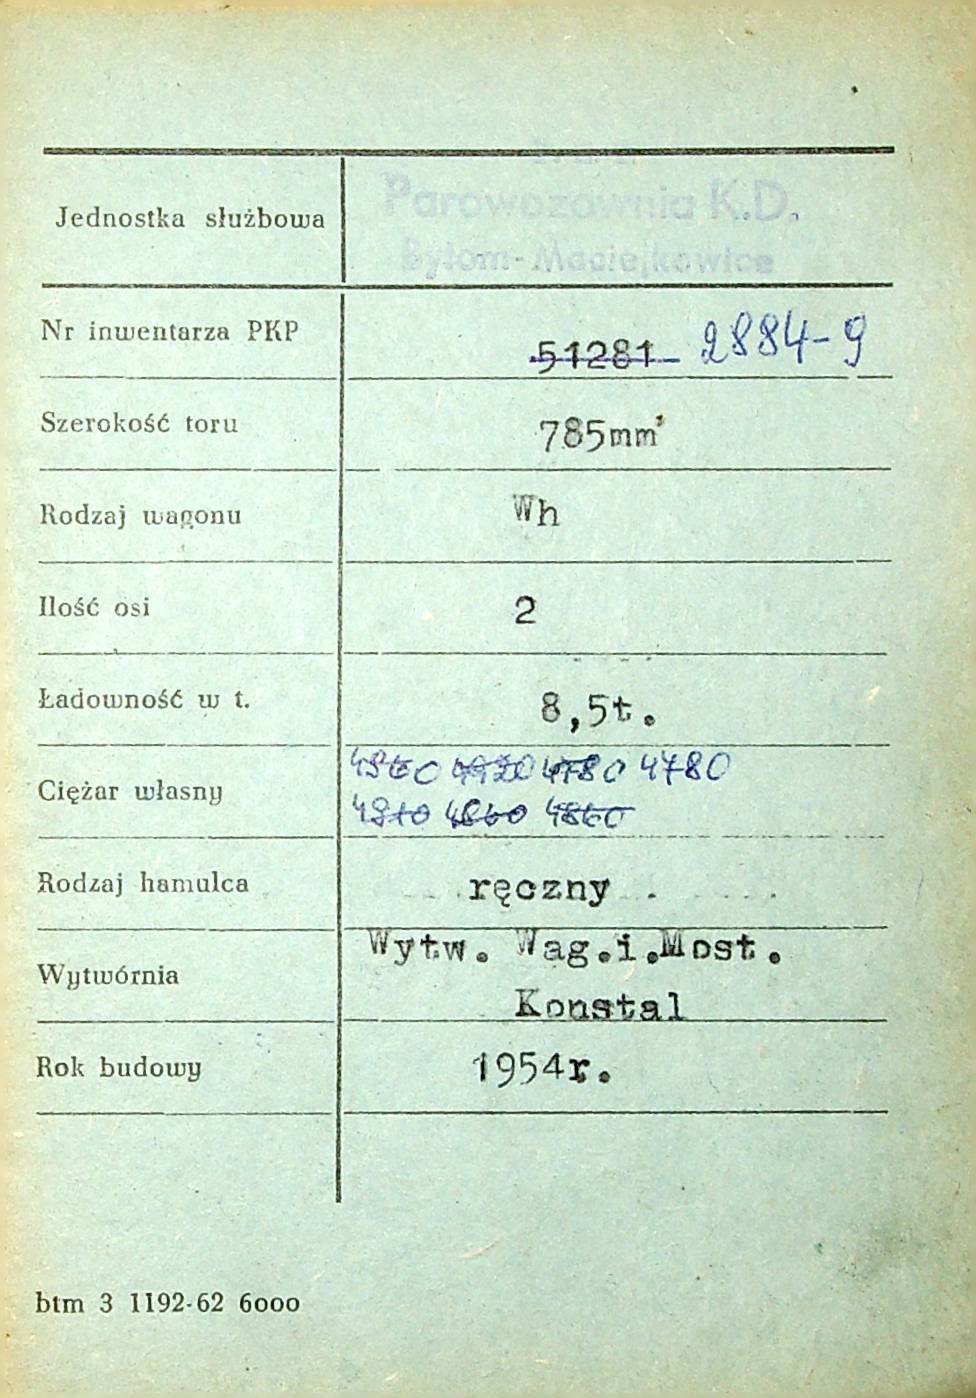 Jednostka służbowa
Parowozownia K.D.
Bytom-Maciejkowice
Nr inwentarza PKP 51281 2884-9
Szerokość toru 785mm
Rodzaj wagonu Wh
Ilość osi 2
Ładowność w t. 8,5t.
Ciężar własny 4780 4780
4810 4860 4860
Rodzaj hamulca ręczny
Wytwórnia Wytw. Wag.i.Most.
Konstal
Rok budowy 1954r.
btm 3 1192-62 6000